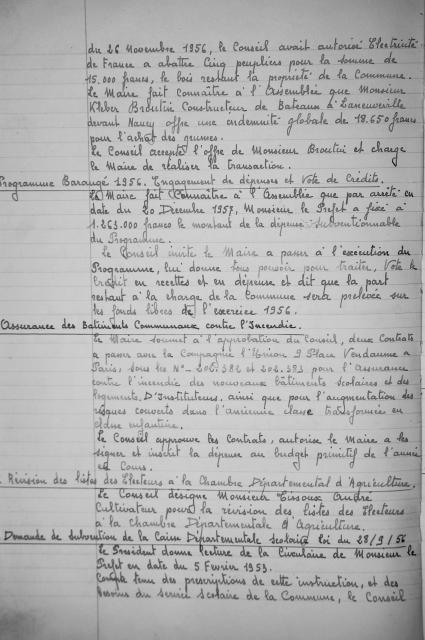 du 26 Novembre 1956, le Conseil avait autorisé Electricité
de France a abattre Cinq peupliers pour la somme de
15.000 francs, le bois restant la propriété de la Commune.
Le Maire fait connaître à l'Assemblée que Monsieur
Kleber Broutin Constructeur de Bateaux à Laneuveville
devant Nancy offre une indemnité globale de 18.650 francs
pour l'achat des grumes.
Le Conseil accepte l'offre de Monsieur Broutin et charge
le Maire de réaliser la transaction.
Programme Barangé 1956. Engagement de dépenses et Vote de Crédits.
Le Maire fait Connaître à l'Assemblée que par arrêté en
date du 20 Décembre 1957, Monsieur le Préfet a fixé à
1.263.000 francs le montant de la dépense subventionnable
du Programme.
Le Conseil invite le Maire a passer à l'exécution du
Programme, lui donne tous pouvoir pour traiter, Vote le
Crédit en recettes et en dépense et dit que la part
restant à la charge de la Commune sera prélevée sur
les fonds libres de l'exercice 1956.
Assurance des Batiments Communaux contre l'Incendie.
Le Maire soumet a l'approbation du Conseil, deux Contrats
a passer avec la Compagnie l'Union 9 Place Vendôme a
Paris, sous les N° 206.382 et 202.593 pour l'Assurance
contre l'incendie des nouveaux bâtiments scolaires et des
logements D'Instituteurs. ainsi que pour l'augmentation des
risques couverts dans l'ancienne classe transformée en
classe enfantine.
Le Conseil approuve les Contrats, autorise le Maire a les
signer et inscrit la dépense au budget primitif de l'année
en Cours.
Révision des listes des Electeurs à la Chambre Départemental d'Agriculture.
Le Conseil désigne Monsieur Tissoux André
Cultivateur pour la révision des listes des Electeurs
à la Chambre Départementale d'Agriculture.
Demande de Subvention de la Caisse Départementale scolaire loi du 28/9/56
le Président donne lecture de la Circulaire de Monsieur le
Préfet en date du 5 Février 1959.
Compte tenu des prescriptions de cette instruction, et des
besoins du service scolaire de la Commune, le Conseil